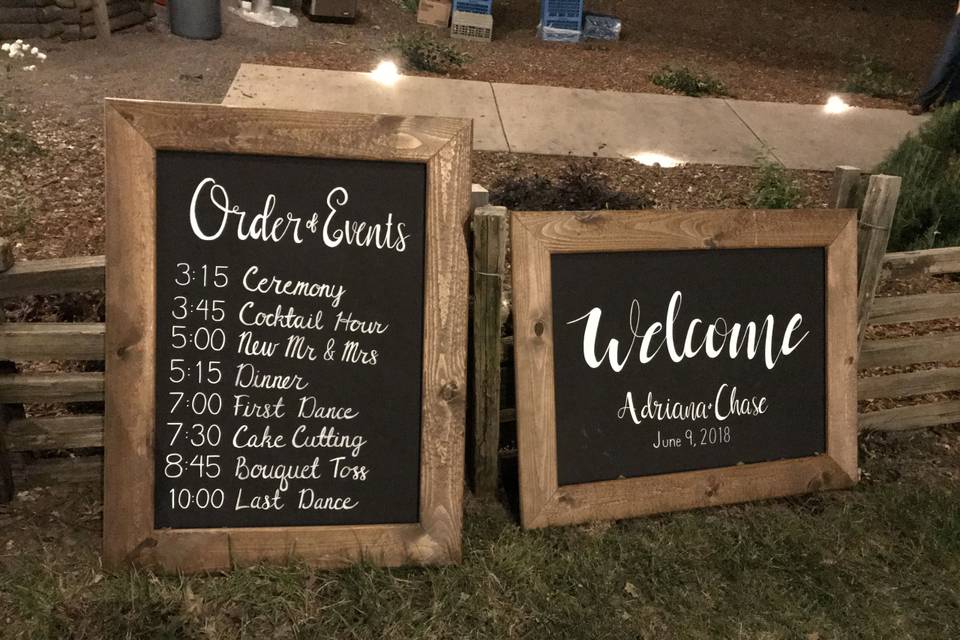 Order of Events
3:15 Ceremony
3:45 Cocktail Hour
5:00 New Mr & Mrs
5:15 Dinner
7:00 First Dance
7:30 Cake Cutting
8:45 Bouquet Toss
10:00 Last Dance
Welcome
Adriana • Chase
June 9, 2018